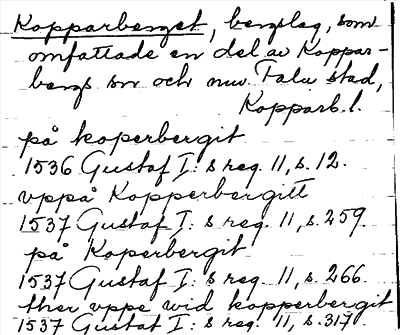 Kopparberget, bergslag, som
omfattade en del av Koppar-
bergs sn och nuv. Falu stad,
Kopparb. l.
på koperbergit
1536 Gustaf I:s reg. 11, s. 12.
vppå Kopperbergitt
1537 Gustaf I:s reg. 11, s. 259.
på Koperbergit
1537 Gustaf I:s reg. 11, s. 266.
ther vppe wid kopperbergit
1537 Gustaf I:s reg. 11, s. 317.